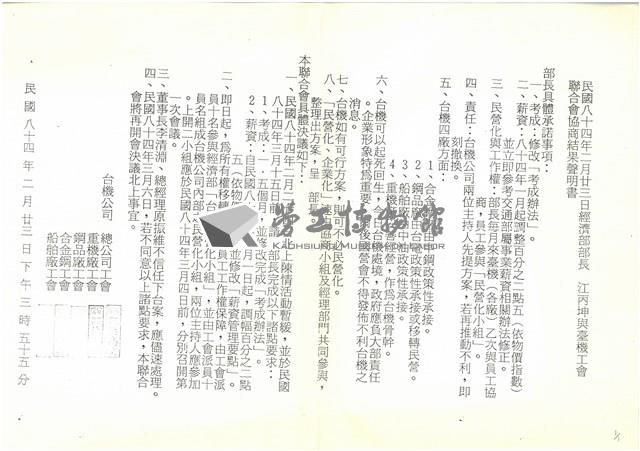 民國八十四年二月廿三日經濟部部長 江丙坤與臺機工會
聯合會協商結果聲明書
部長具體承諾事項：
一、考成：修改「考成辦法」。
二、薪資：八十四年一月起調整百分之二點五（依物價指數）
並立即參考交通部屬事業薪資相關辦法修正。
三、民營化與工作權：部長每月來臺機（各廠）乙次與員工協
商，員工參與「民營化小組」。
四、責任：台機公司兩位主持人先提方案，若再推動不利，即
刻撤換。
五、台機四廠方面：
1、合金鋼廠由中鋼政策性承接。
2、鋼品廠由台電政策性承接或移轉民營。
3、船舶廠
4、重機廠 經營，作為台機骨幹。
六、台機可以起死回生，今日台機處境，政府應負大部責任
。企業形象特為重要，今後國營會不得發佈不利台機之
消息。
七、台機如有可行方案，則不 民營化。
八、「民營化、企業化」速由協商小組及經理部門共同參與，
整理出方案，呈 部長
本聯合會具體決議如下：
一、民國八十四年二月二 上陳情活動暫緩，並於民國
八十四年三月十五日前 部長完成以下諸點要求：
1、考成：一．五個月，並修改完成「考成辦法」。
2、薪資：自民國八 月一日起，調幅百分之二點
五（依物 並修改「薪資管理要點」。
二、即日起，為所有權移 員工工作權保障，由工會派
員十名參與經濟部「台 化小組」，並由工會派員十
員名組成台機公司內部「民營化小組」，兩位主持人應參加
。上開二小組應於民國八十四年三月四日前，分別召開第
一次會議。
三、董事長李清淵、總經理原振維不信任下台案，應儘速處理。
四、民國八十四年三月六日，若不同意以上諸點要求，本聯合
會將再開會決議北上事宜。
台機公司 總公司工會
重機廠工會
鋼品廠工會
合金鋼工會
船舶廠工會
民國八十四年二月廿三日下午三時五十五分
勞工博物館
KAOHSIUNG MUSEUM OF LABOR